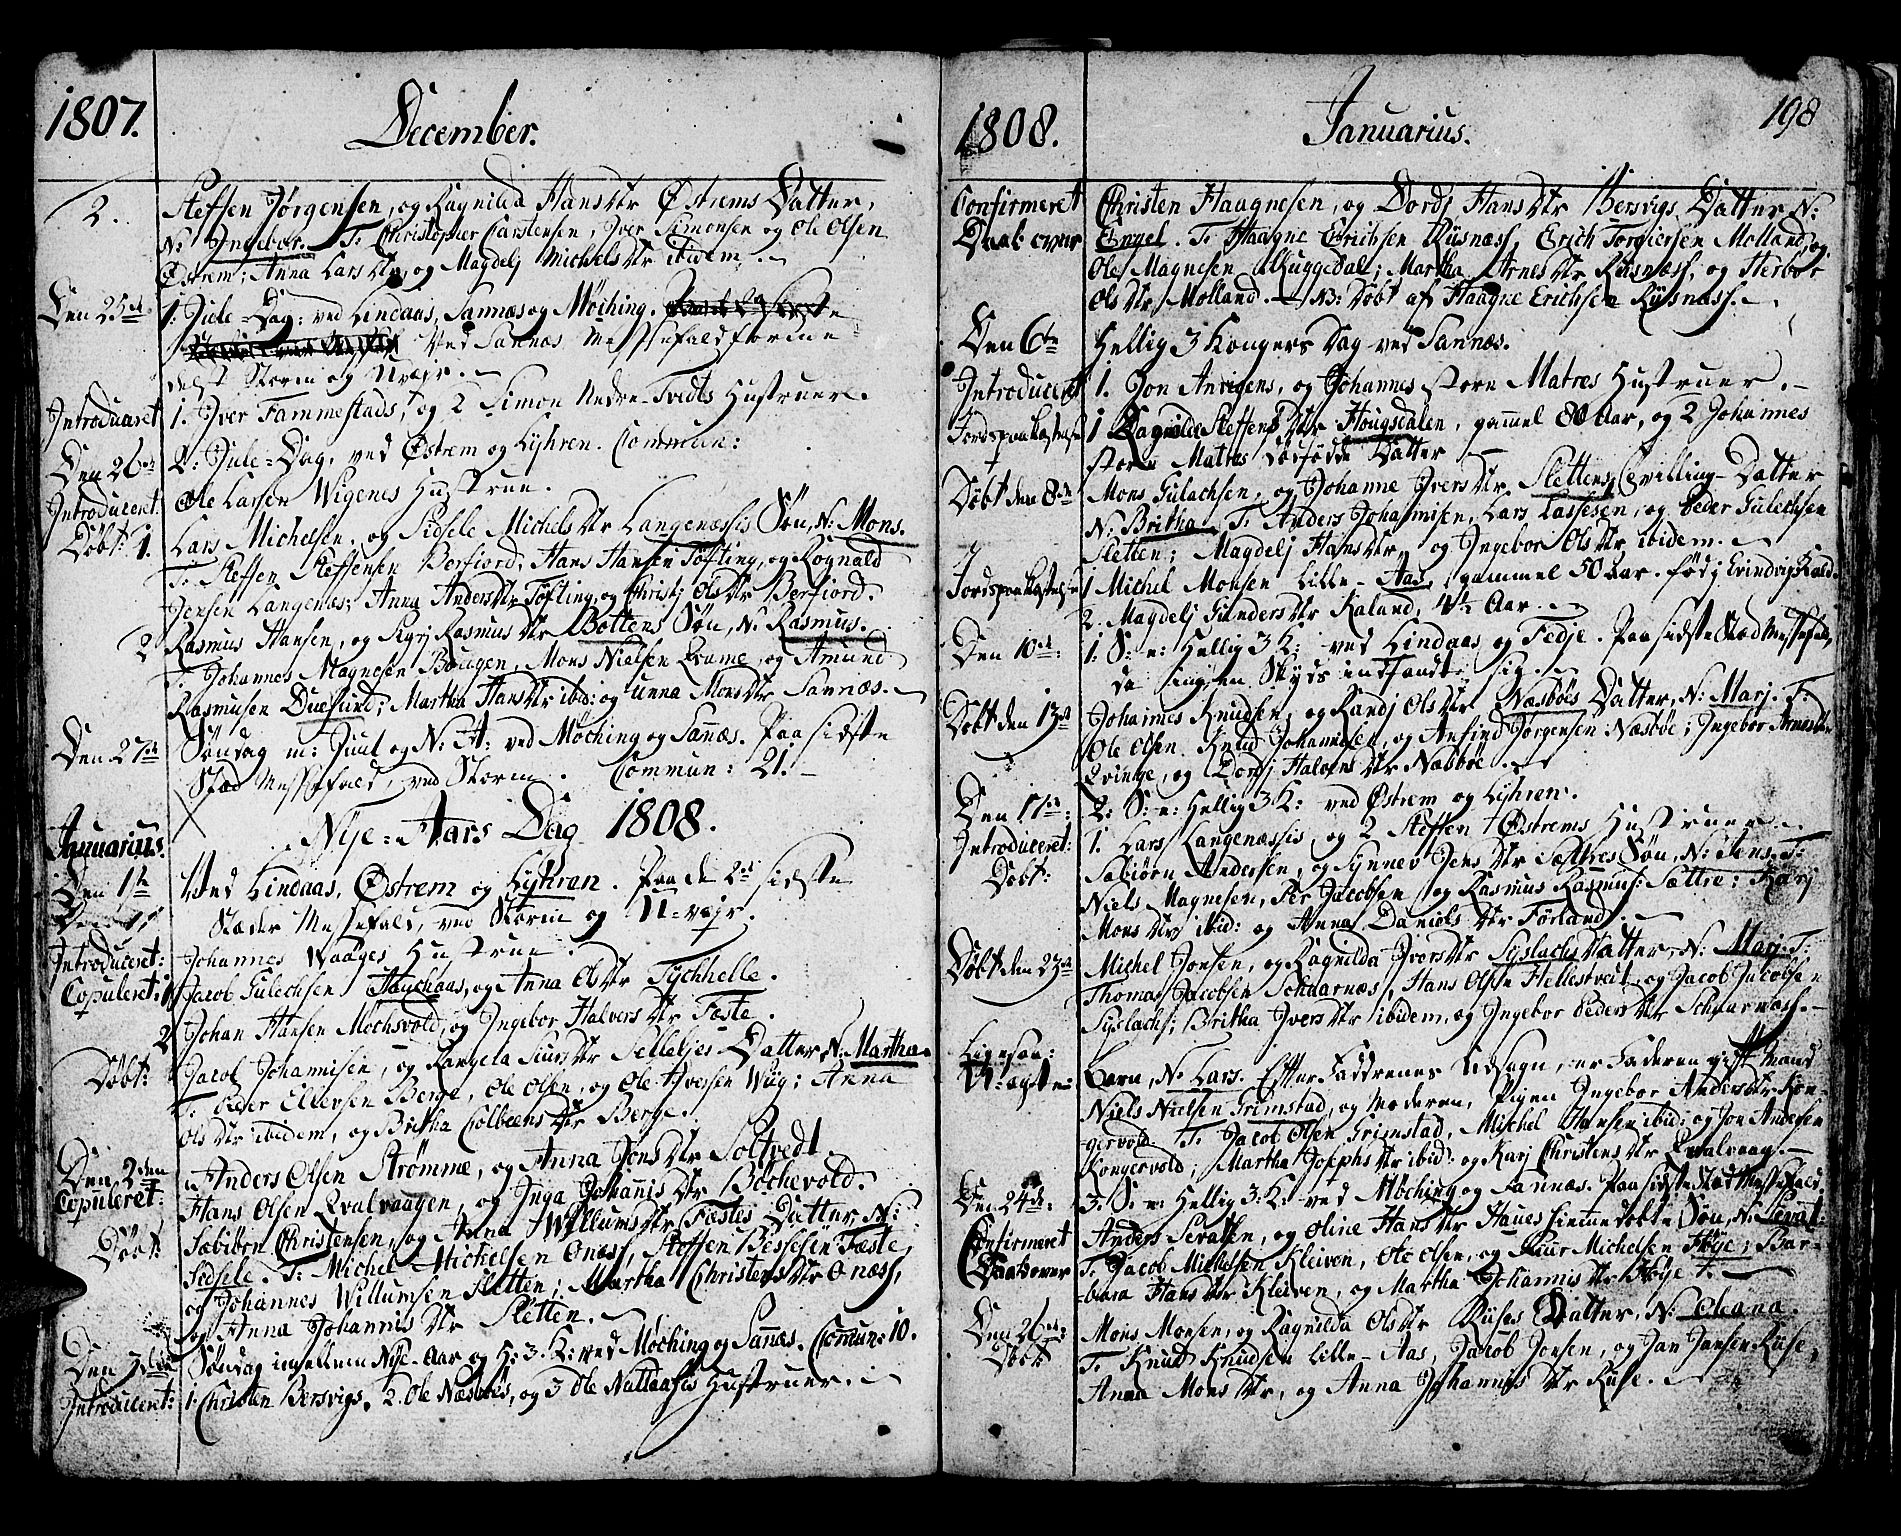 1807.
December.
2. Steffen Jørgensen, og Ragnilda Hans dtr Østrems Datter,
N: Ingebor. T: Christopher Carstensen, Iver Simonsen og Ole Olsen
Østrem; Anna Lars dtr, og Magdelj Michels dtr ibidem.
Den 25de 1. Jule-Dag: ved Lindaas, Sannæs og Møching.
Ved Sannæs Messefald formed
delst Storm og Uvejr.
Introduceret 1. Iver Fammestads, og 2 Simon Nedre-Tvedts Hustruer.
Den 26de 2: Jule-Dag, ved Østrem og Lyhren. Commun:
Introduceret: Ole Larsen Wigenes Hustrue.
Døbt: 1. Lars Michelsen, og Sidsele Michels dtr Langenæssis Søn, N: Mons.
T: Steffen Steffensen Berfiord, Hans Hansen Tøfting, og Rognald
Jensen Langenæs; Anna Anders dtr Tøfting, og Christj Ols dtr Berfiord.
2 Rasmus Hansen, og Sigrj Rasmus dtr Bottens Søn, N: Rasmus.
T: Johannes Magnesen Bougen, Mons Nielsen Qvame, og Amund
Rasmusen Duesund; Martha Hans dtr ibid: og Unna Mons dtr Sannæs.
Den 27de Søndag m: Juul og N: A: ved Møching og Sannæs. Paa sidste
Stæd Messefald, ved Storm. Commun: 21.
Nye-Aars Dag 1808.
Januarius.
Den 1te Ved Lindaas, Østrem og Lyhren. Paa de 2de sidste
Stæder Messefald, ved Storm og U-vejr.
Introduceret: Johannes Waages Hustrue.
Copuleret: 1. Jacob Gulechsen Hauchaas, og Anna Ols dtr Tychhelle.
2 Johan Hansen Mochsvold, og Ingebor Halvers dtr Feste.
Døbt: Jacob Johannisen, og Rangela Siurs dtr Selleljes Datter, N: Martha.
T: Peder Ellersen Berge, Ole Olsen, og Ole Iversen Wiig; Anna
Ols dtr ibidem, og Britha Colbeens dtr Berge.
Den 2den Anders Olsen Strømme, og Anna Jens dtr Soltvedt.
Copuleret: Hans Olsen Qvalvaagen, og Inga Johannis dtr Bøchevold.
Døbt: Sæbiørn Christensen, og Anna Willums dtr Festes Datter, N:
Sidsele. T: Michel Michelsen Onæss, Steffen Bessesen Feste,
og Johannes Willumsen Sletten; Martha Christens dtr Onæss,
og Anna Johannis dtr Sletten.
Den 3die Søndag imellem Nye-Aar og H: 3. K: ved Møching og Sannæs. Commun: 10.
Introduceret: 1. Christen Bersvigs, 2. Ole Næsbøes, og 3 Ole Nattaasis Hustruer.
1808.
Januarius.
198
Confirmeret Christen Haagnesen, og Dordj Hans dtr Bersvigs Datter N:
Daab over Engel. T: Haagne Erichsen Risnæss, Erich Torgiersen Molland, og
Ole Magnesen Ruggedal; Martha Arnes dtr Risnæss, og Herbor
Ols dtr Molland. NB: Døbt af Haagne Erichsen Risnæss.
Den 6te Hellig 3 Kongers Dag ved Sannæs.
Introduceret 1. Jon Anvigens, og Johannes store Matres Hustruer.
Jordspaakastelse 1 Ragnilda Steffens dtr Hougsdalen, gammel 80 Aar, og 2 Johannes
store Matres dødfødde Datter
Døbt den 8de Mons Gulachsen, og Johanne Ivers dtr Slettens Tvilling-Datter
N: Britha. T: Anders Johannisen, Lars Lassesen, og Peder Gulechsen
Sletten; Magdelj Hans dtr, og Ingebor Ols dtr ibidem.
Jordspaakastelse 1 Michel Monsen Lille-Aas, gammel 50 Aar. født j Evindvig Kald.
2. Magdelj Gunders dtr Kaland, 4½ Aar.
Den 10de: 1. S: e: Hellig 3 K: ved Lindaas og Fedje. Paa sidste Stæd Messefald,
da ingen Skyds indfandt sig.
Døbt den 13de Johannes Knudsen, og Randj Ols dtr Næsbøes Datter, N: Marj. T:
Ole Olsen Knud Johannisen, og Anfind Jørgensen Næsbøe; Ingebor Arnes dtr
Qvinge, og Dordj Halvers dtr Næsbøe.
Den 17de: 2: S: e: Hellig 3 K: ved Østrem og Lyhren.
Introduceret: 1. Lars Langenæssis, og 2 Steffen Østrems Hustruer.
Døbt: Sæbiørn Andersen, og Synnev Jens dtr Sættres Søn, N: Jens. T:
Niels Magnesen, Per Jacobsen, og Rasmus Rasmus: Sættre; Karj
Mons dtr ibid: og Anna Daniels dtr Førland.
Døbt den 23de Michel Jonsen, og Ragnilda Ivers dtr Syslachs Datter, N: Marj. T:
Thomas Jacobsen Scharnæs, Hans Olsen Hellestveit, og Jacob Jacobsen
Syslach; Britha Ivers dtr ibidem, og Ingebor Peders dtr Scharnæss.
Ligesaa: U-ægte: Barn, N: Lars. Efter Faddrenes Udsagn, er Faderen gift Mand
Niels Nielsen Grimstad, og Moderen, Pigen Ingebor Anders dtr Kon-
gervold. T: Jacob Olsen Grimstad, Michel Hansen ibid: og Jon Andersen
Kongervold; Martha Josephs dtr ibid: og Karj Christens dtr Qvalvaag.
Den 24de: 3. S: e: Hellig 3. K: ved Møching og Sannæs. Paa sidste Stæd Messefald.
Confirmeret Anders Sevalsen, og Oline Hans dtr Haues hiemmedøbte Søn, N: Sevat:
Daab over T: Jacob Michelsen Kleiven, Ole Olsen, og Peder Michelsen Høye; Bar-
bara Hans dtr Kleiven, og Martha Johannis dtr Høye.
Den 26de: Mons Monsen, og Ragnilda Ols dtr Riises Datter, N: Oleana.
Døbt T: Knud Knudsen Lille-Aas, Jacob Jonsen, og Jan Jansen Riise,
Anna Mons dtr, og Anna Johannis dtr Riise.